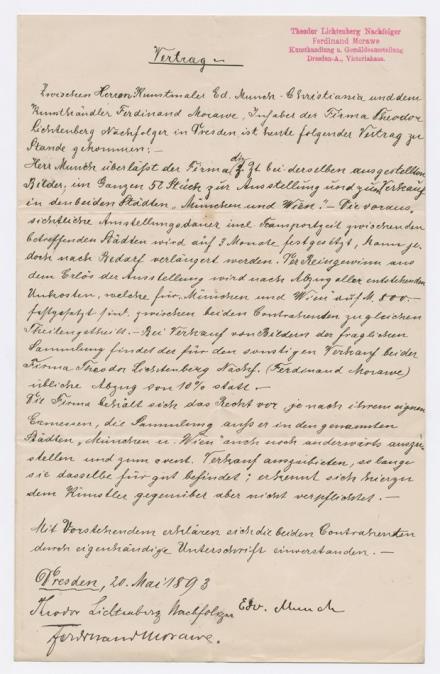 Theodor Lichtenberg Nachfolger
Ferdinand Morawe
Kunsthandlung u. Gemäldeausstellung
Dresden-A., Victoriahaus.
Vertrag
Zwischen Herrn Kunstmaler Ed. Munch-Christiania und dem
Kunsthändler Ferdinand Morawe, Inhaber der Firma Theodor
Lichtenberg Nachfolger in Dresden ist heute folgender Vertrag zu
Stande gekommen:–
Herr Munch überlässt der Firma die z. Zt bei derselben ausgestellten
Bilder, im Ganzen Stück zur Ausstellung und zum Verkauf
in den beiden Städten „München und Wien“.– Die voraus-
sichtliche Ausstellungsdauer incl. Transportzeit zwischen den
betreffenden Städten wird auf 3 Monate festgesetzt, kann je-
doch nach Bedarf verlängert werden. Der Reingewinn aus
dem Erlös der Ausstellung wird nach Abzug aller entstehenden
Unkosten, welche für München und Wien auf M. 800.–
festgesetzt sind, zwischen beiden Contrahenten zu gleichen
Theilen getheilt.– Bei Verkauf von Bildern der fraglichen
Sammlung findet der für den sonstigen Verkauf bei der
Firma Theodor Lichtenberg Nachf. (Ferdinand Morawe)
übliche Abzug von 10% statt.–
Die Firma behält sich das Recht vor je nach ihrem eignen
Ermessen, die Sammlung ausser in den genannten
Städten „München u. Wien“ auch noch anderwärts auszu-
stellen und zum event. Verkauf anzubieten, so lange
sie dasselbe für gut befindet; erkennt sich hierzu
dem Künstler gegenüber aber nicht verpflichtet.–
Mit Vorstehendem erklären sich die beiden Contrahenten
durch eigenhändige Unterschrift einverstanden.–
Dresden, 20. Mai 1893
Theodor Lichtenberg Nachfolger Edv. Munch
Ferdinand Morawe.